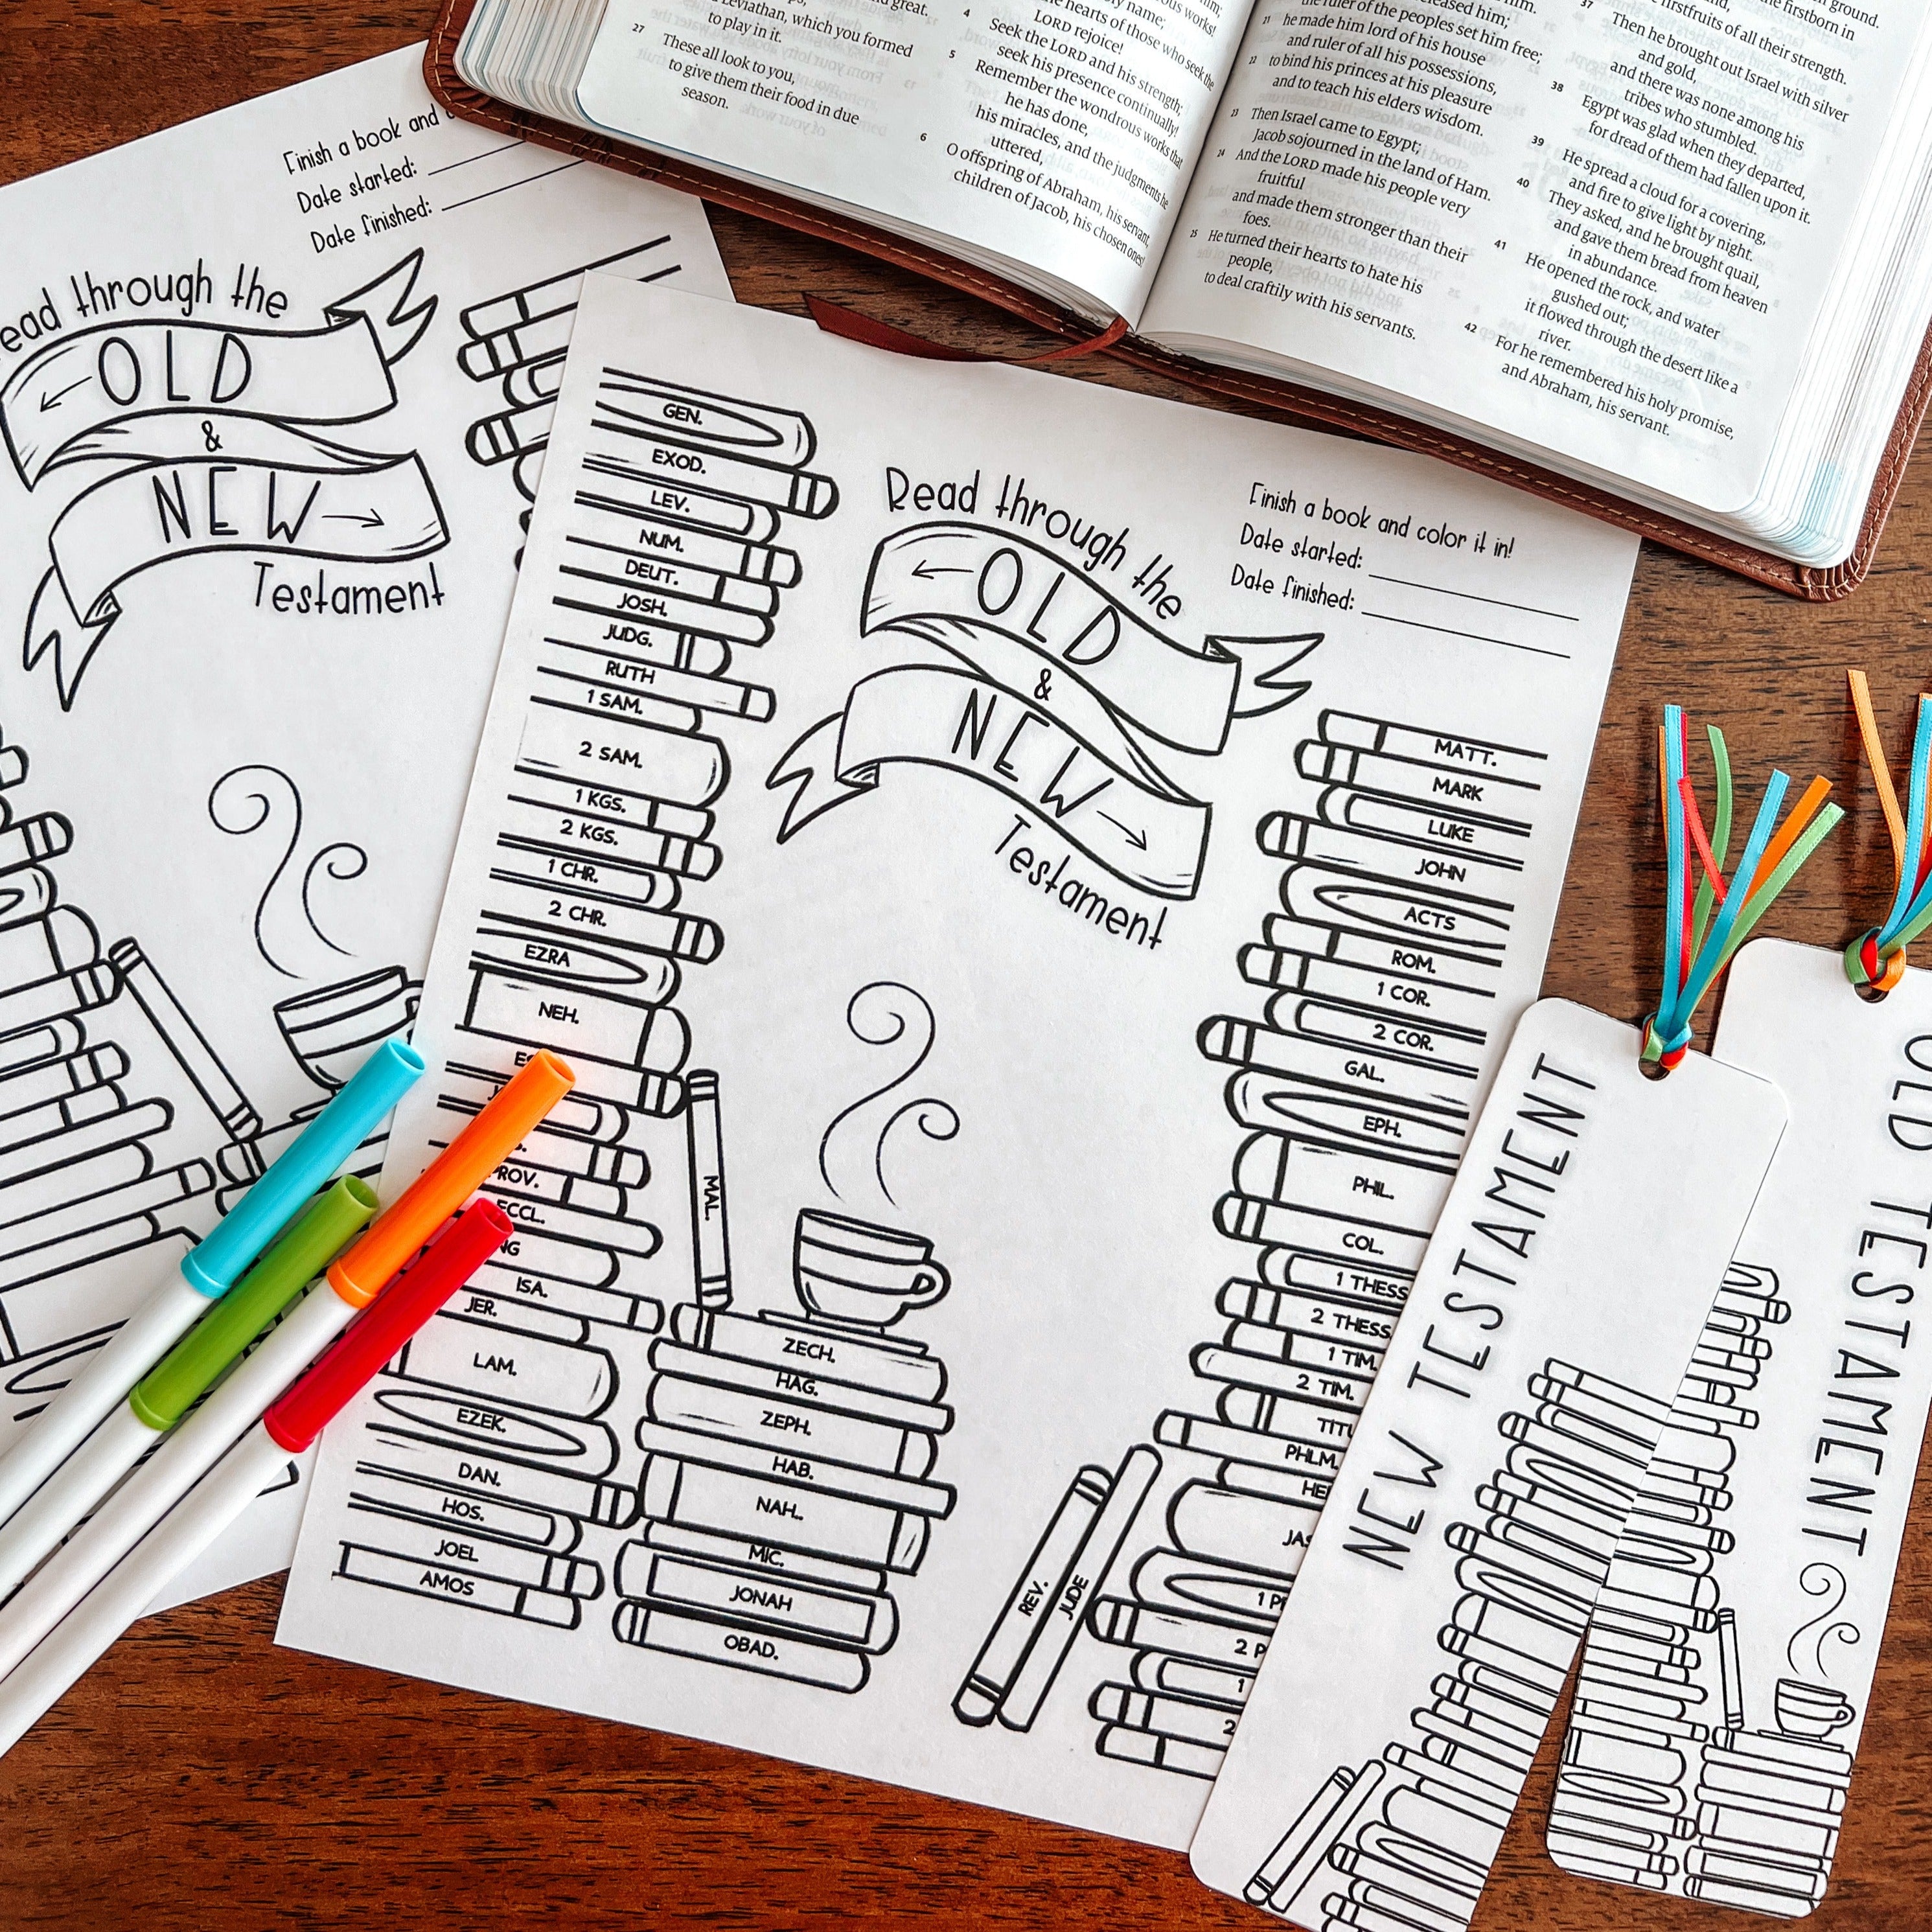 great.
Leviathan, which you formed
to play in it.
27 These all look to you,
to give them their food in due
season.
works!
name;
4
hearts of those who seek the
LORD rejoice!
5 Seek the LORD and his strength;
seek his presence continually!
Remember the wondrous works that
he has done,
his miracles, and the judgments he
uttered,
6 O offspring of Abraham, his servant,
children of Jacob, his chosen ones!
him;
ruler of the peoples set him free;
21 he made him lord of his house
and ruler of all his possessions,
22 to bind his princes at his pleasure
and to teach his elders wisdom.
23 Then Israel came to Egypt;
Jacob sojourned in the land of Ham.
24 And the LORD made his people very
fruitful
and made them stronger than their
foes.
25 He turned their hearts to hate his
people,
to deal craftily with his servants.
the firstborn in
ground.
firstfruits of all their strength.
37 Then he brought out Israel with silver
and gold,
and there was none among his
tribes who stumbled.
38 Egypt was glad when they departed,
for dread of them had fallen upon it.
39 He spread a cloud for a covering,
and fire to give light by night.
40 They asked, and he brought quail,
and gave them bread from heaven
in abundance.
41 He opened the rock, and water
gushed out;
it flowed through the desert like a
river.
42 For he remembered his holy promise,
and Abraham, his servant.
Finish a book and
Date started:
Date finished:
through the
OLD
&
NEW
Testament
Read through the
OLD
&
NEW
Testament
Finish a book and color it in!
Date started:
Date finished:
GEN.
EXOD.
LEV.
NUM.
DEUT.
JOSH.
JUDG.
RUTH
1 SAM.
2 SAM.
1 KGS.
2 KGS.
1 CHR.
2 CHR.
EZRA
NEH.
ECCL.
ISA.
JER.
LAM.
EZEK.
DAN.
HOS.
JOEL
AMOS
MAL.
ZECH.
HAG.
ZEPH.
HAB.
NAH.
MIC.
JONAH
OBAD.
MATT.
MARK
LUKE
JOHN
ACTS
ROM.
1 COR.
2 COR.
GAL.
EPH.
PHIL.
COL.
1 THESS
2 THESS
1 TIM.
2 TIM.
PHLM.
REV.
JUDE
NEW TESTAMENT
OLD TESTAMENT